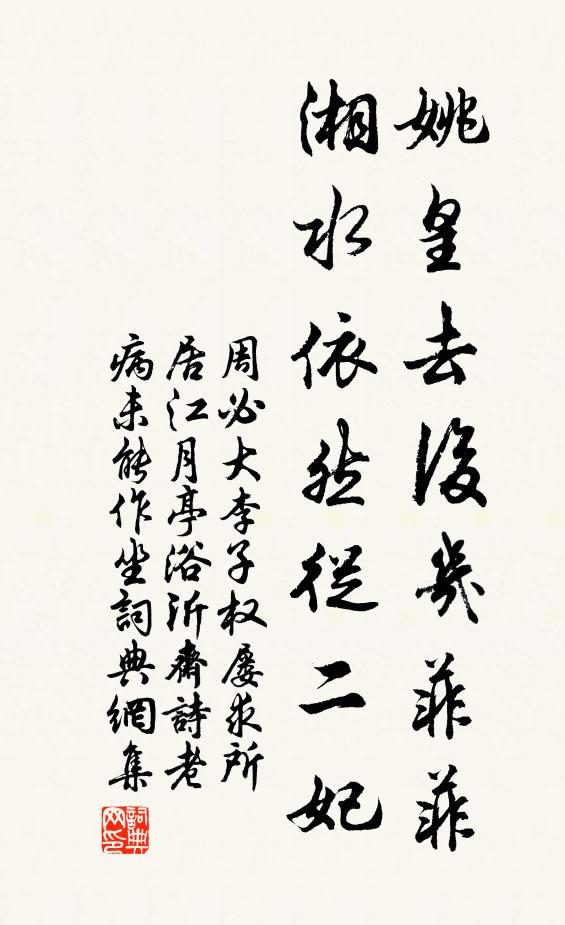 姚皇去後幾菲菲
湘水依然從二妃
周必大李子权屡求所
居江月亭浴沂齋詩老
病未能作坐詞典網集
詞典网印